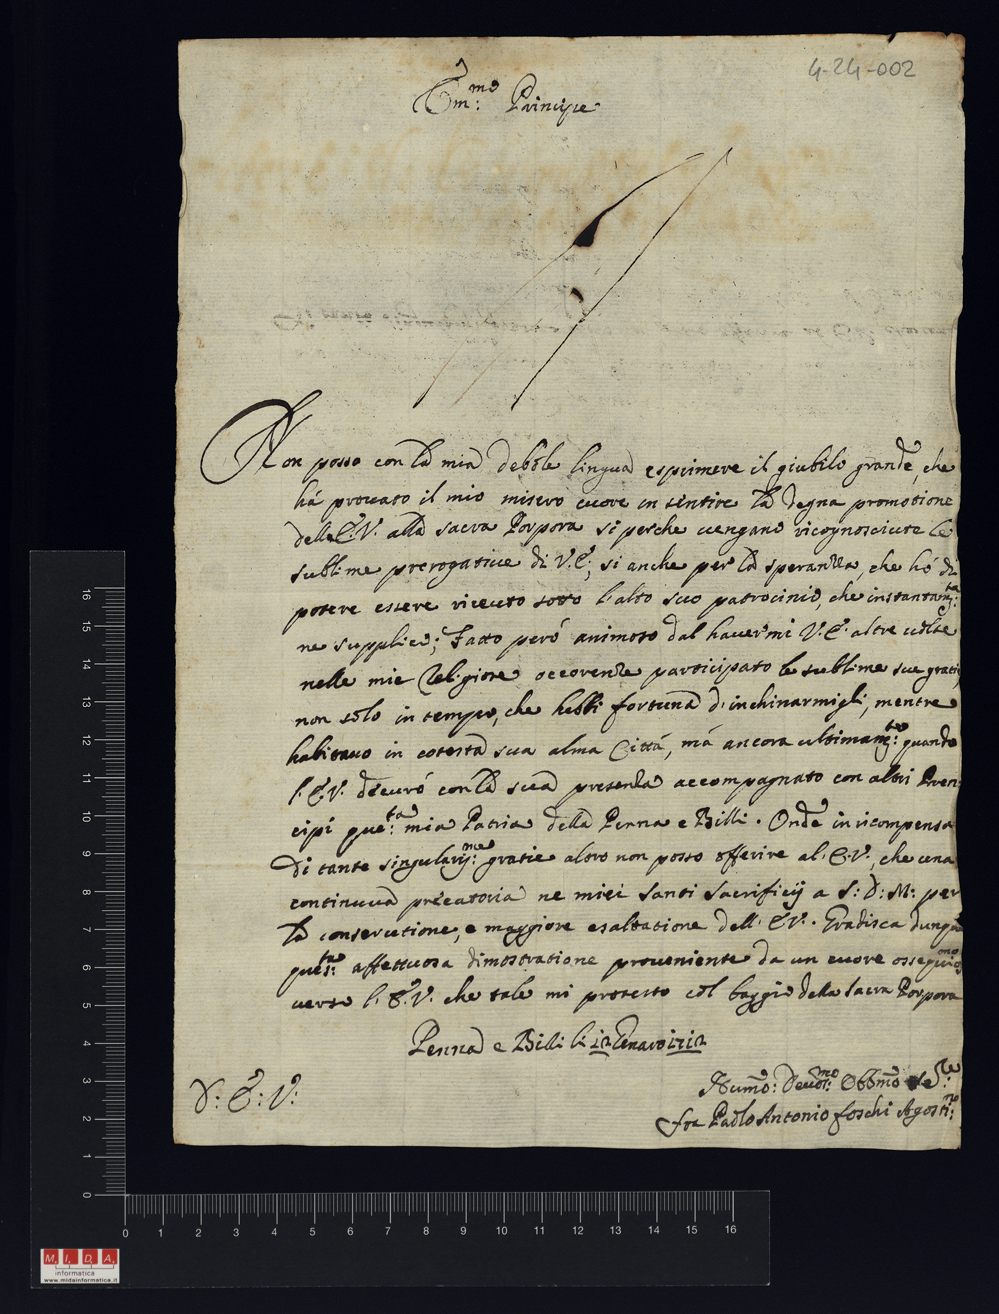 4-24-002
Em:mo Principe
Non posso con la mia debole lingua esprimere il giubilo grande, che
hà prouato il mio misero cuore in sentire la degna promotione
dell E.V. alla sacra Porpora si perche uengano ricognosciute le
sublime prerogatiue di V.E., si anche per la speranza, che hò di
potere essere riceuto sotto l'alto suo patrocinio, che instantam:te
ne supplico; Fatto però animoso dal hauermi V.E. altre uolte
nelle mie Religiose occorenze participato le sublime sue gratie,
non solo in tempo, che hebbi fortuna d'inchinarmigli, mentre
habitauo in cotesta sua alma Città, mà ancora ultimam:te quando
l'E.V. decorò con la sua presenza accompagnato con altri Pren
cipi que:ta mia Patria della Penna e Billi. Onde in ricompensa
di tante singulariss:me gratie altro non posso offerire al E.V., che una
continuua precatoria ne miei santi sacrificij a S: D: M: per
la conseruatione, e maggiore esaltatione dell' E.V. Gradisca dunque
ques:ta affettuosa dimostratione proueniente da un cuore ossequios
uerso l'E.V. che tale mi protesto col baggio della sacra Porpora
Penna e Billi li 12 Genaro 1712
D: E: V:
Humo: Deuot:mo Obbmo Se:re
fra Paolo Antonio foschi Agosti:no
16
15
14
13
12
11
10
9
8
7
6
5
4
3
2
1
0
0 1 2 3 4 5 6 7 8 9 10 11 12 13 14 15 16
M. I. D. A.
informatica
www.midainformatica.it